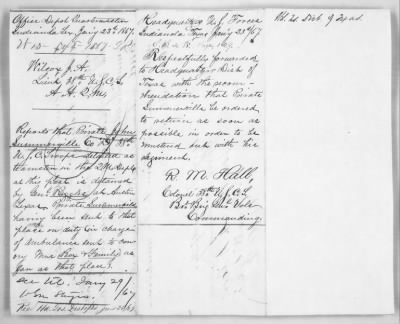 Office Depot Quartermaster
Indianola Tex Jany 23d 1867.
Wilcox J. A.
Lieut 38th U.S.C.I.
A. A. Q. M.
Reports that Private John
Summerville Co 38th
U.S.C. Troops detailed as
teamster in the Q M Dept
at this post is detained
by Genl at Austin
Texas, Private Summerville
having been sent to that
place on duty in charge
of Ambulance sent to con-
vey Mrs & Family as
far as that place.
see let. Jany 29/67
Headquarters U.S. Forces
Indianola Texas Jany 23d 67
Respectfully forwarded
to Headquarters Dist of
Texas with the recom-
mendation that Private
Summerville be ordered
to return as soon as
possible in order to be
mustered out with his
regiment.
R. M. Hall
Colonel 38th U.S.C.I.
Bvt Brig Genl Vols
Commanding.